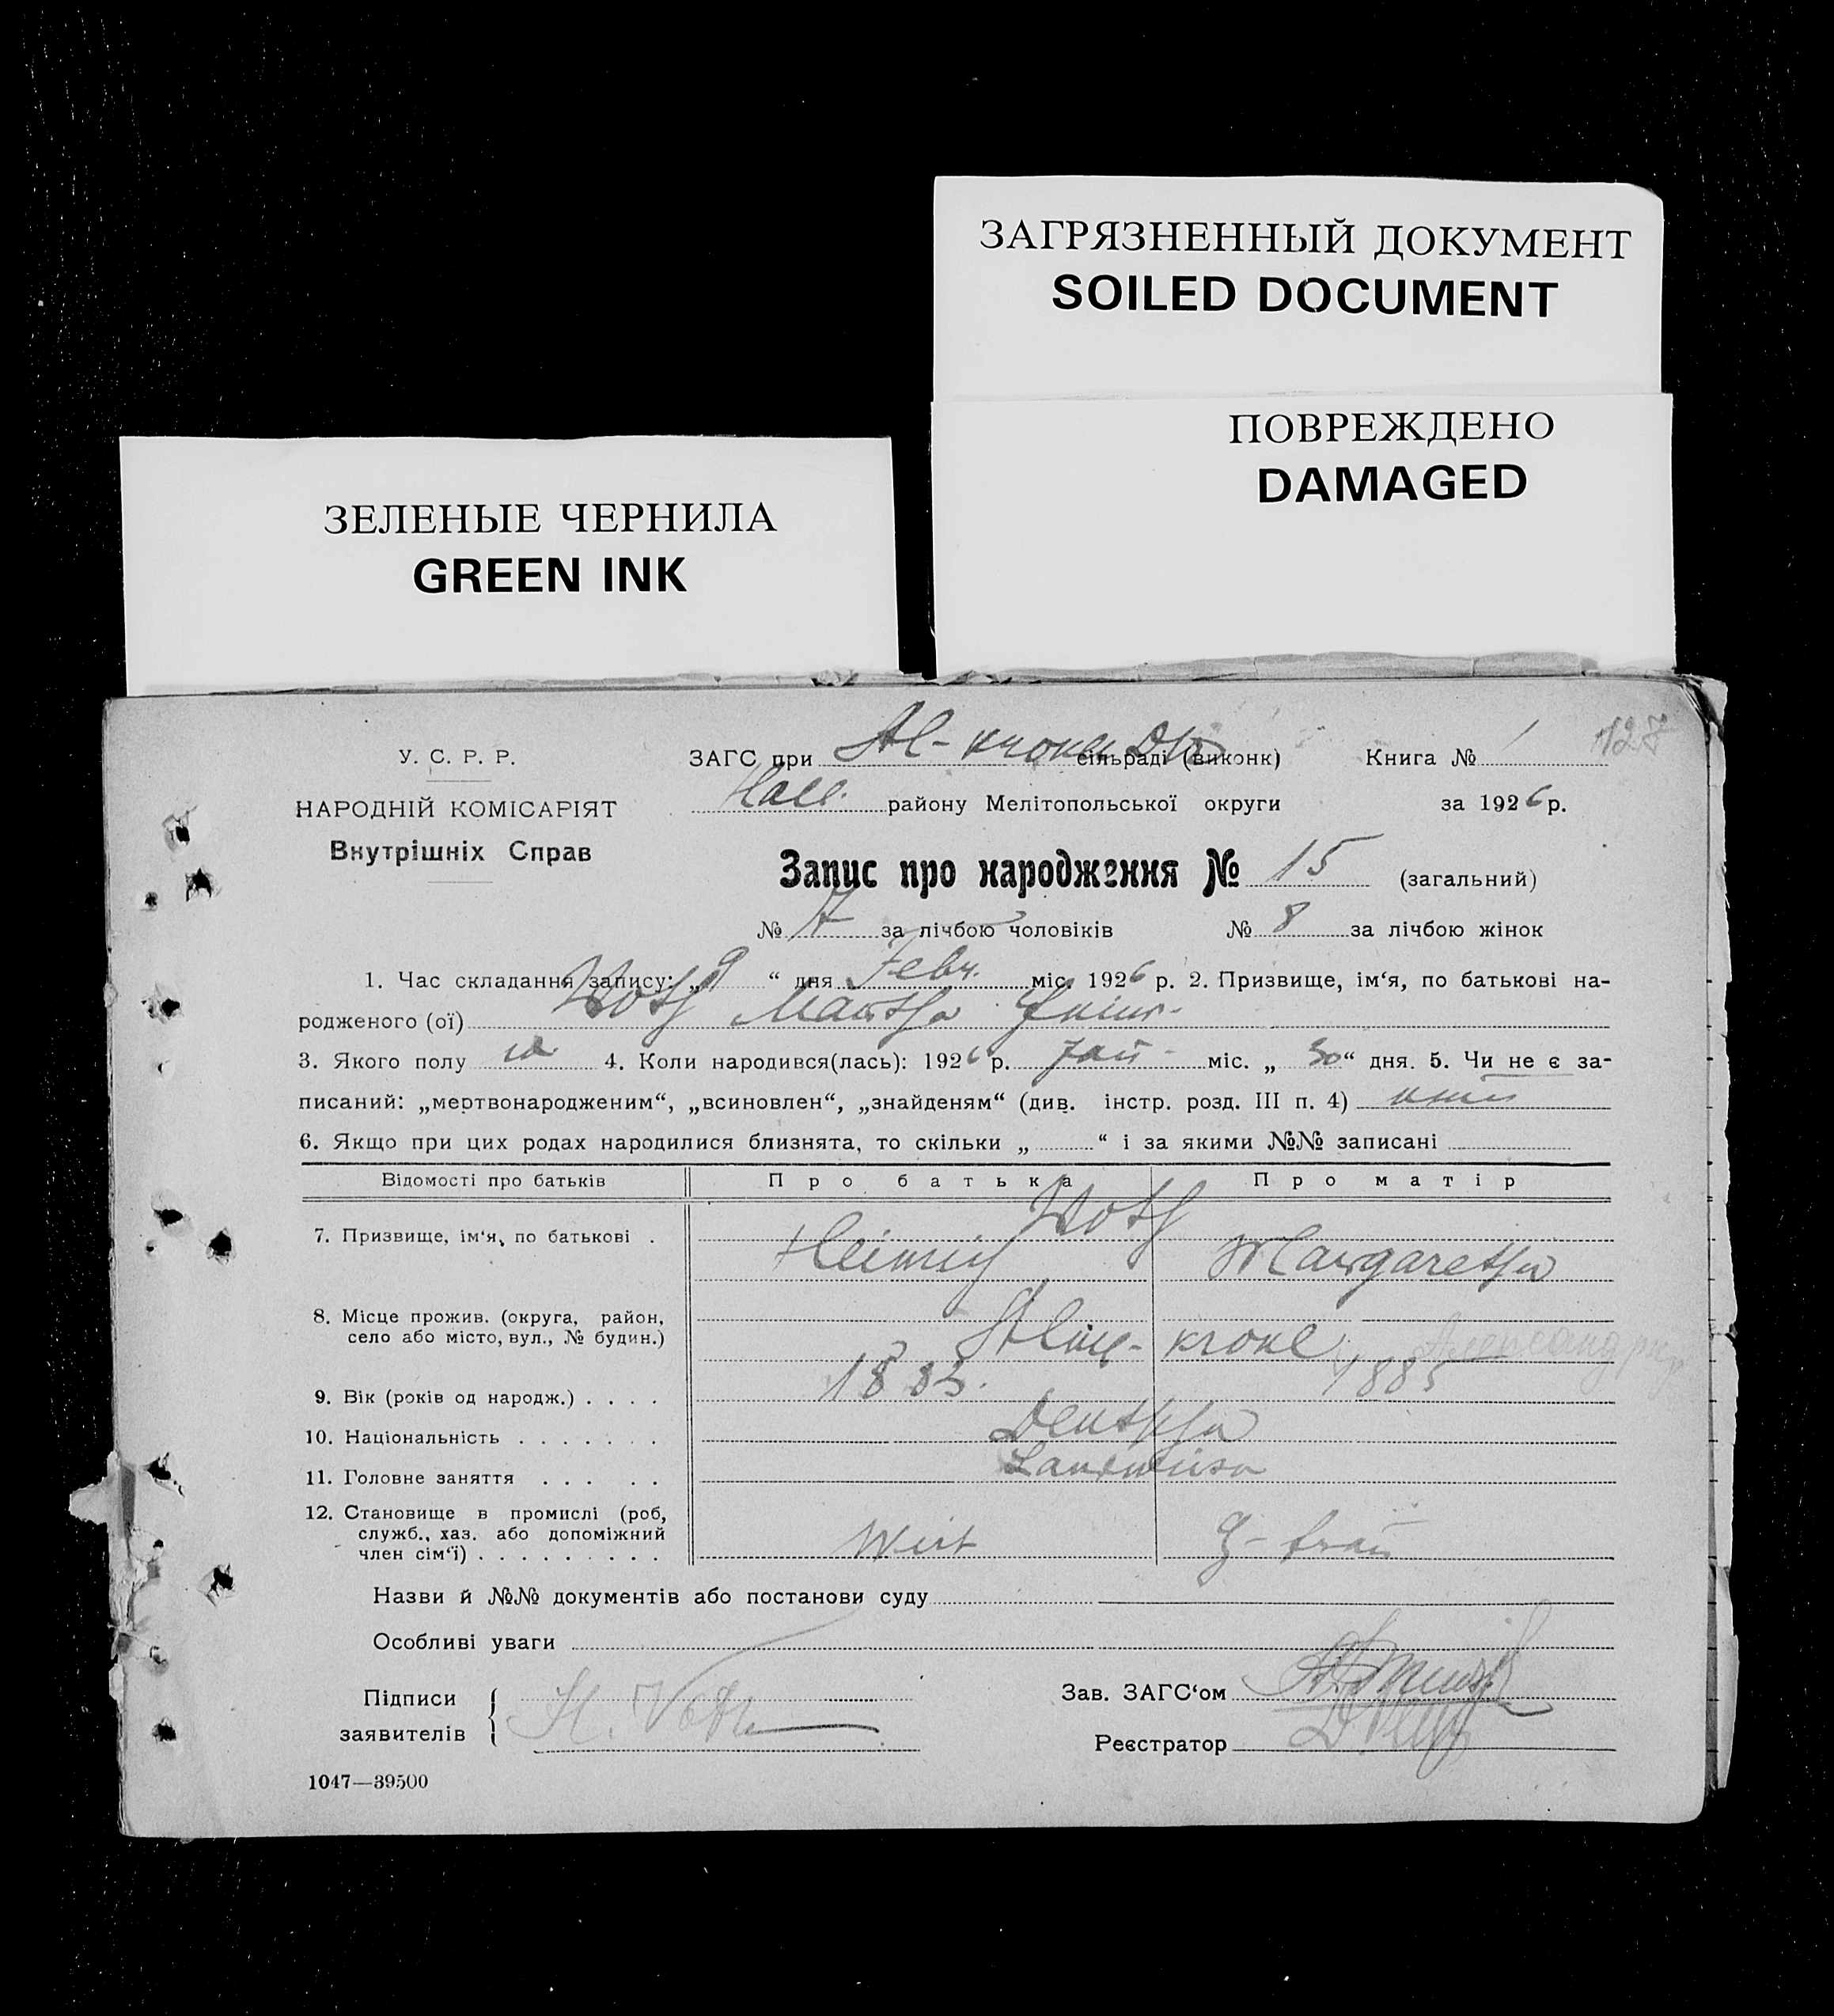 ЗАГРЯЗНЕННЫЙ ДОКУМЕНТ
SOILED DOCUMENT
ПОВРЕЖДЕНО
DAMAGED
ЗЕЛЕНЫЕ ЧЕРНИЛА
GREEN INK
127
У. С. Р. Р.
НАРОДНІЙ КОМІСАРІЯТ
Внутрішніх Справ
ЗАГС при Al-krone сільраді (виконк) Книга № 1
Halb. району Мелітопольської округи за 1926 р.
Запис про народження № 15 (загальний)
№ 7 за лічбою чоловіків № 8 за лічбою жінок
1. Час складання запису: „9“ дня Febr. міс. 1926 р. 2. Призвище, ім‘я, по батькові на-
родженого (ої) Voth Martha Heinr-
3. Якого полу w. 4. Коли народився(лась): 1926 р. Jan- міс. „30“ дня. 5. Чи не є за-
писаний: „мертвонародженим“, „всиновлен“, „знайденям“ (див. інстр. розд. III п. 4)
6. Якщо при цих родах народилися близнята, то скільки „ “ і за якими №№ записані
Відомості про батьків Про батька Про матір
7. Призвище, ім‘я, по батькові . Voth
Heinrich Margaretha
8. Місце прожив. (округа, район,
село або місто, вул., № будин.) krone
9. Вік (років од народж.) . . . . 1883. 1885
10. Національність . . . . . . . Deutsche
11. Головне заняття . . . . .
12. Становище в промислі (роб,
служб., хаз. або допоміжний
член сім‘ї) . . . . . . . . . Wirt frau
Назви й №№ документів або постанови суду
Особливі уваги
Підписи
заявителів H. Voth
Зав. ЗАГС‘ом
Реєстратор
1047—39500